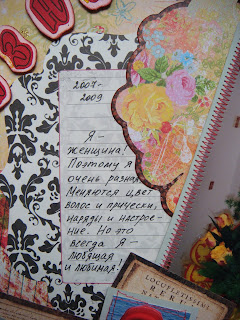 2007-
2009
Я -
женщина!
Поэтому я
очень разная.
Меняются цвет
волос и прически,
наряды и настрое-
ние. Но это
всегда Я -
любящая
и любимая!